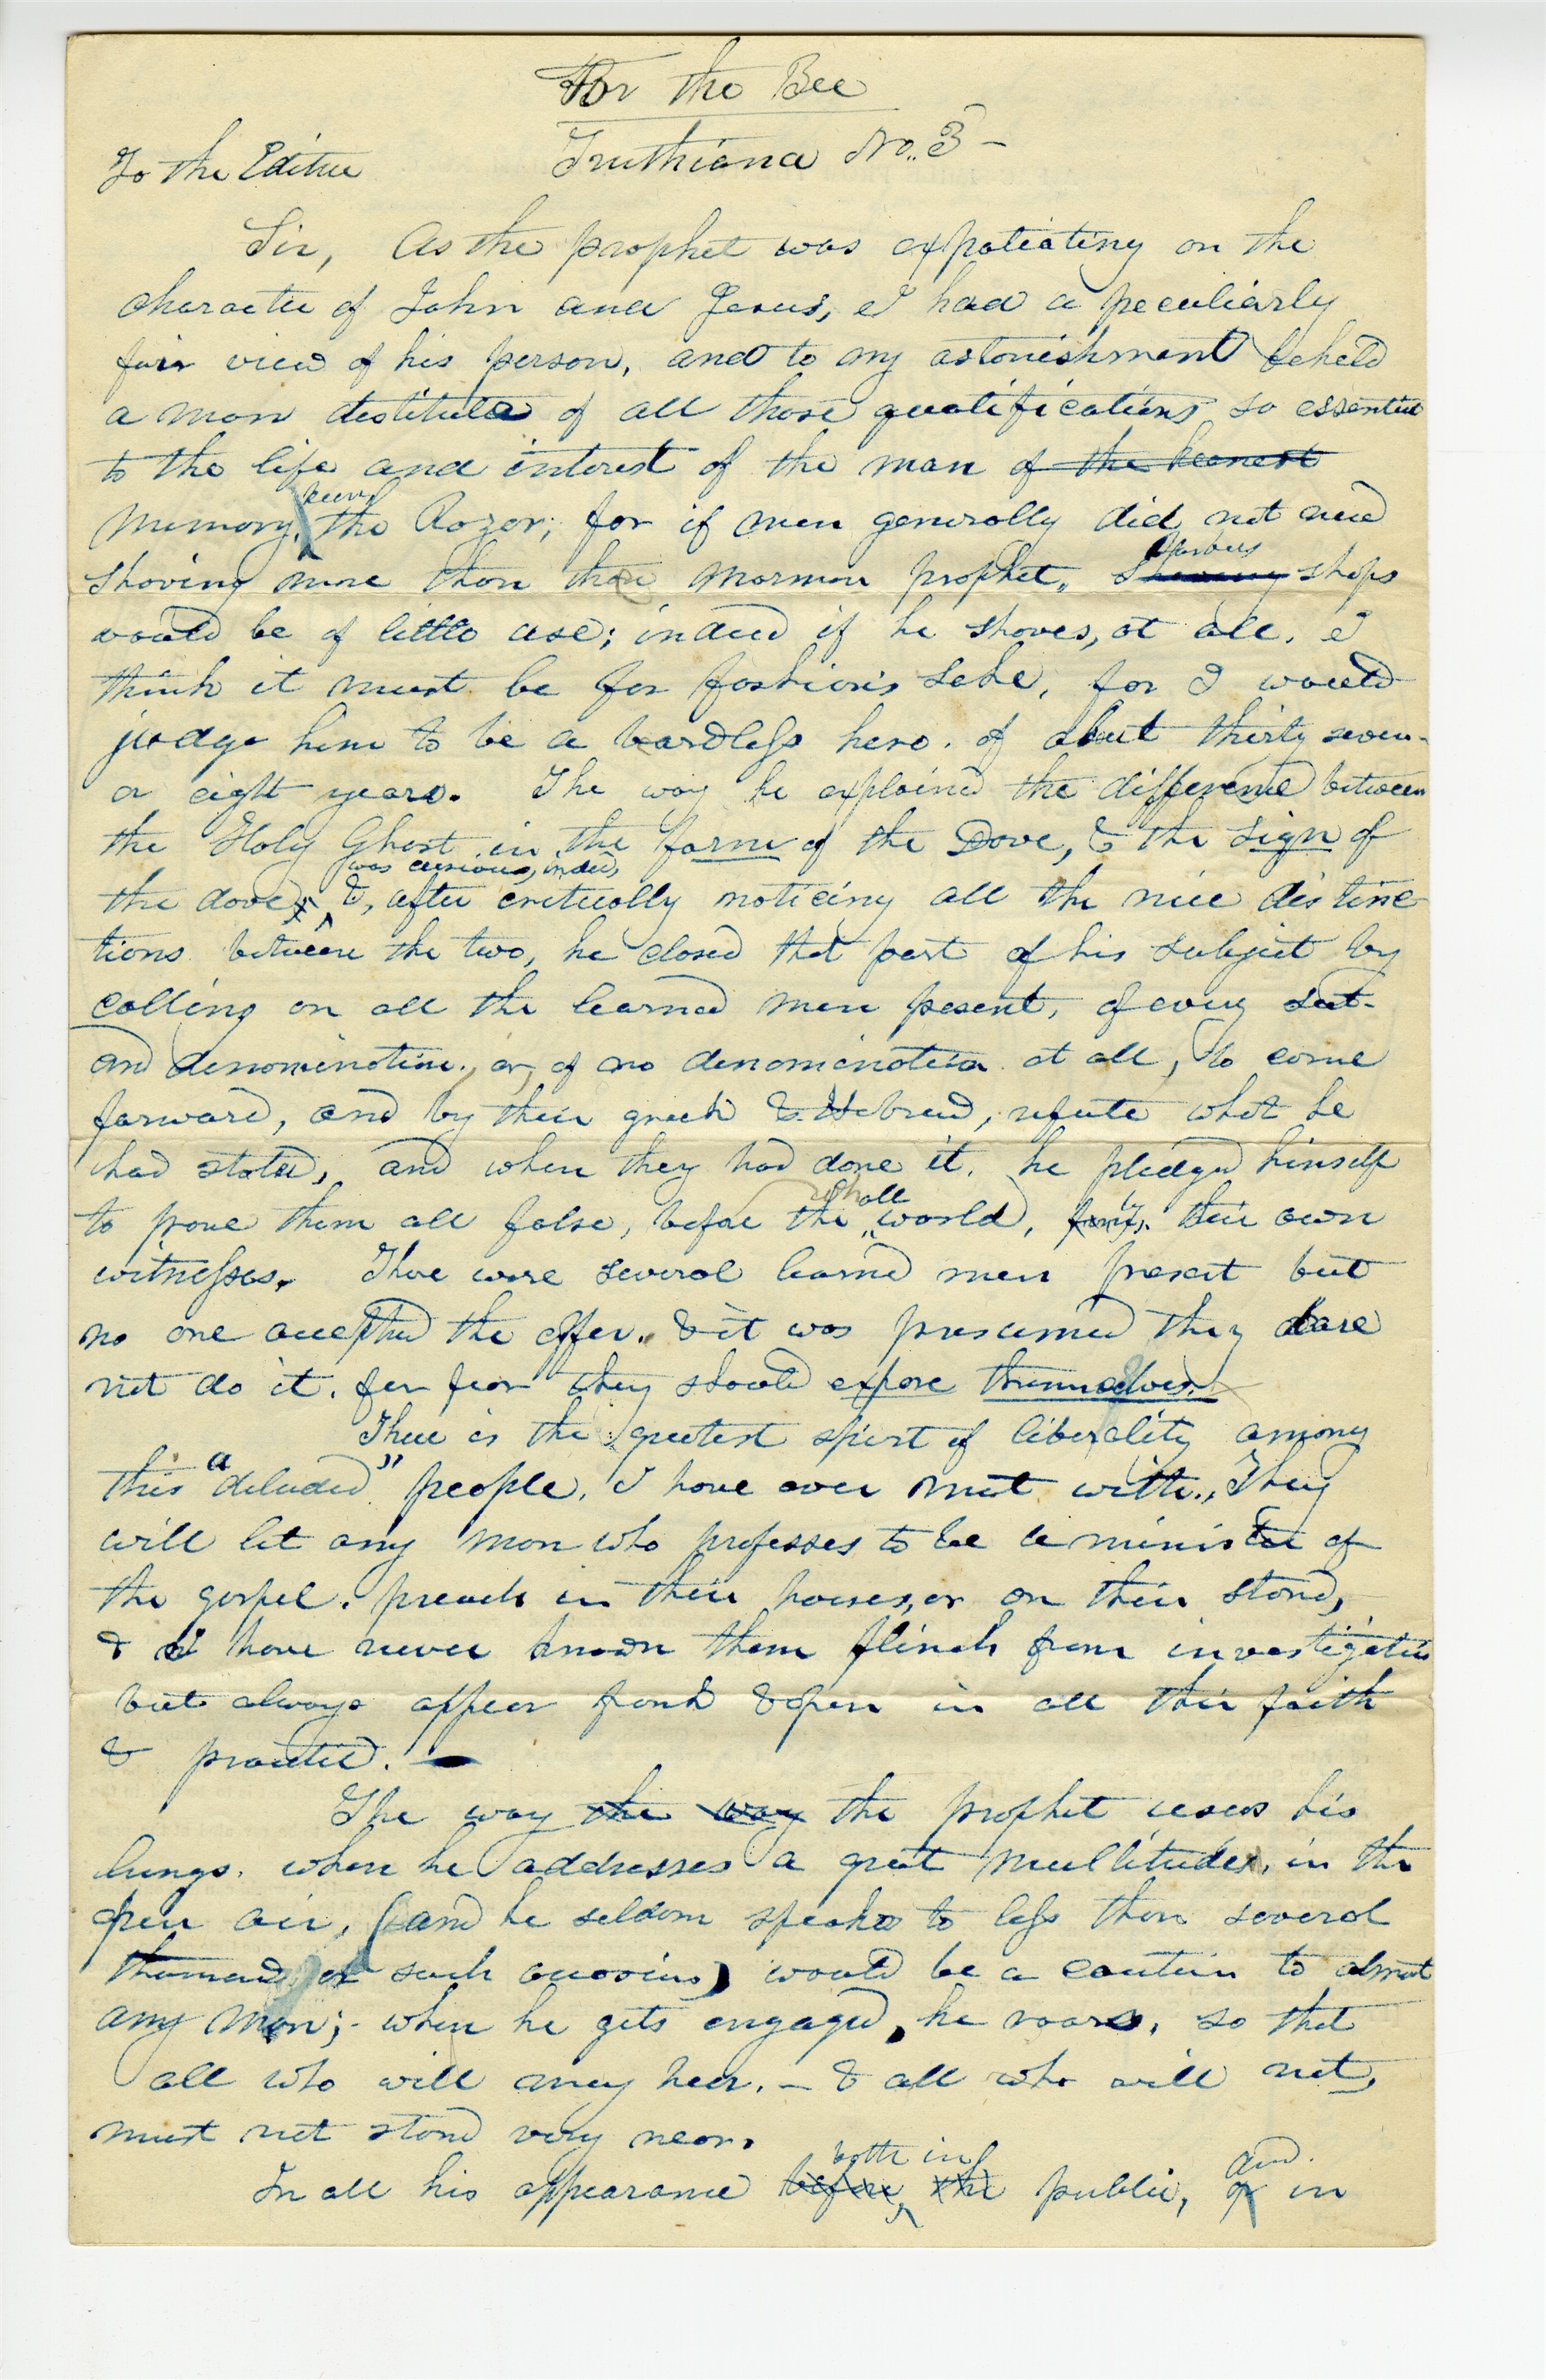 For the Bee
Truthiana No. 3 -
To the Editor
Sir, As the prophet was expatiating on the
character of John and Jesus, I had a peculiarly
fair view of his person, and to my astonishment beheld
a man destitute of all those qualifications so essential
to the life and interest of the man of the keenest
keen
memory, the Razor; for if men generally did not need
barbers
shaving more than the mormon prophet, shaving shops
would be of little use; indeed if he shaves, at all, I
think it must be for fashion's sake, for I would
judge him to be a beardless hero. of about thirty seven
or eight years. The way he explained the difference between
the Holy Ghost in the form of the Dove, & the sign of
was curious, indeed,
the dove; &, after critically noticing all the nice distinc
tions between the two, he closed that part of his subject by
calling on all the learned men present, of every sect
and denomination, or, of no denomination at all, to come
forward, and by their greek & Hebrew, refute what he
had stated, and when they had done it, he pledged himself
whole
to prove them all false, before the world, by their own
witnesses. There were several learned men present but
no one accepted the offer, & it was presumed they dare
not do it, for fear they should expose themselves.
There is the greatest spirit of liberality among
this "deluded" people, I have ever met with., They
will let any man who professes to be a minister of
the gospel, preach in their houses, or on their stand,
& I have never known them flinch from investigation
but always appear frank & open in all their faith
& practice. —
The way the way the prophet uses his
lungs, when he addresses a great multitude, in the
open air, (and he seldom speaks to less than several
thousand on such occasions) would be a caution to almost
any man; - when he gets engaged, he roars, so that
all who will may hear. - & all who will not,
must not stand very near.
both in and
In all his appearance before, the public, or in